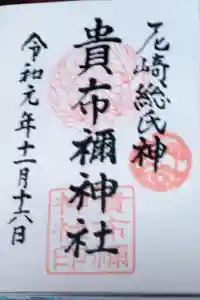 尼崎総氏神
貴布禰神社
令和元年十一月十六日